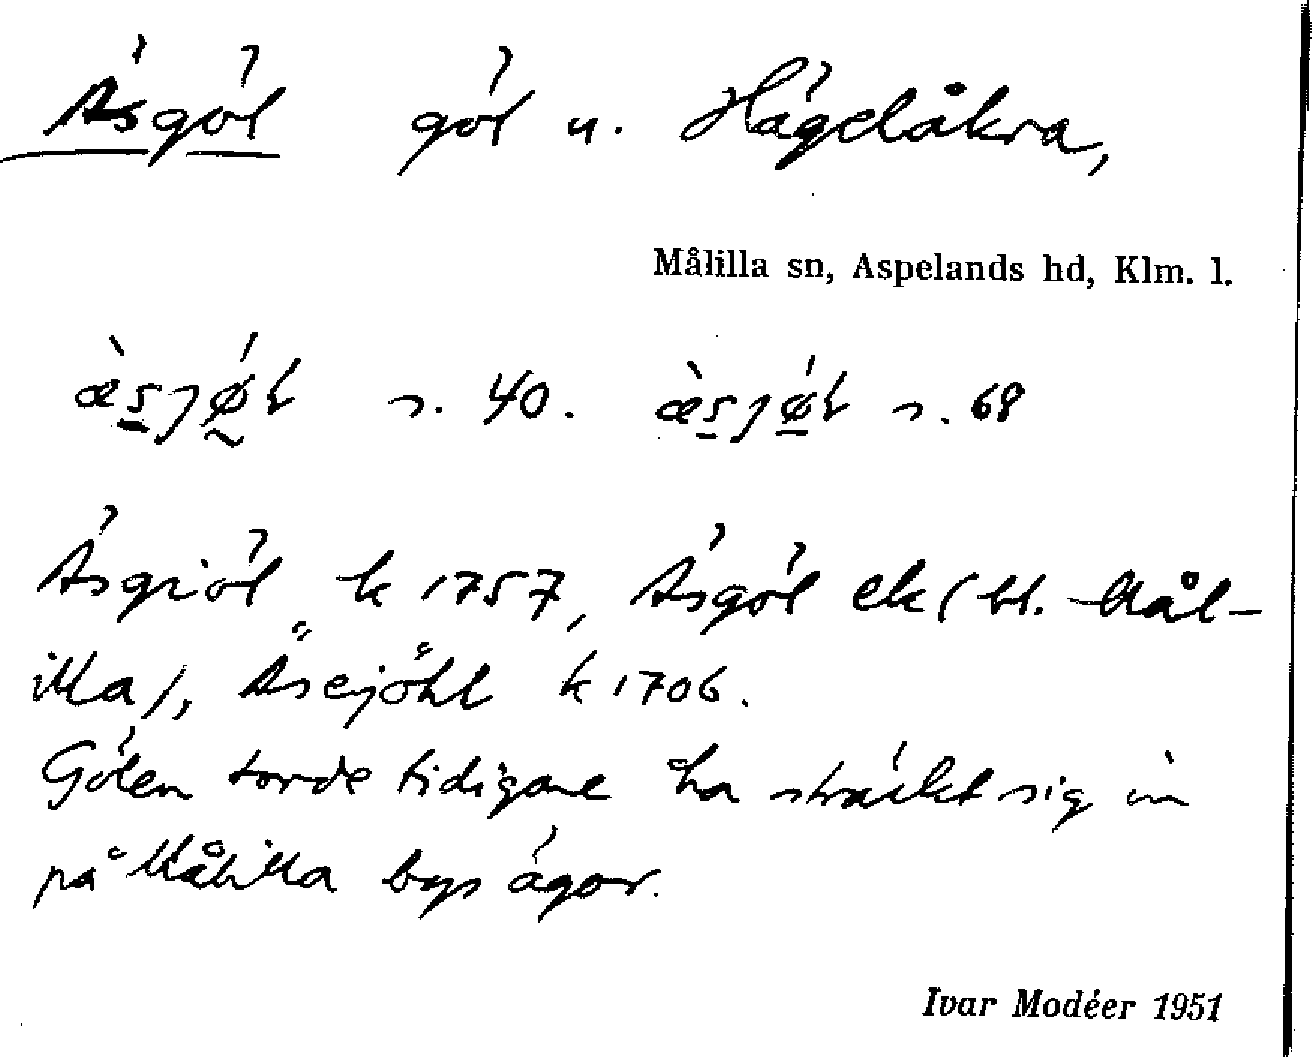 Äsgöl göl u. Hägelåkra,
Målilla sn, Aspelands hd, Klm. l.
s. 40. s. 68
Äsgiöl k 1757, Äsgöl ek (bl. Mål-
illa), Äsejöhl k 1706.
Gölen torde tidigare ha sträckt sig in
på Målilla bys ägor.
Ivar Modéer 1951